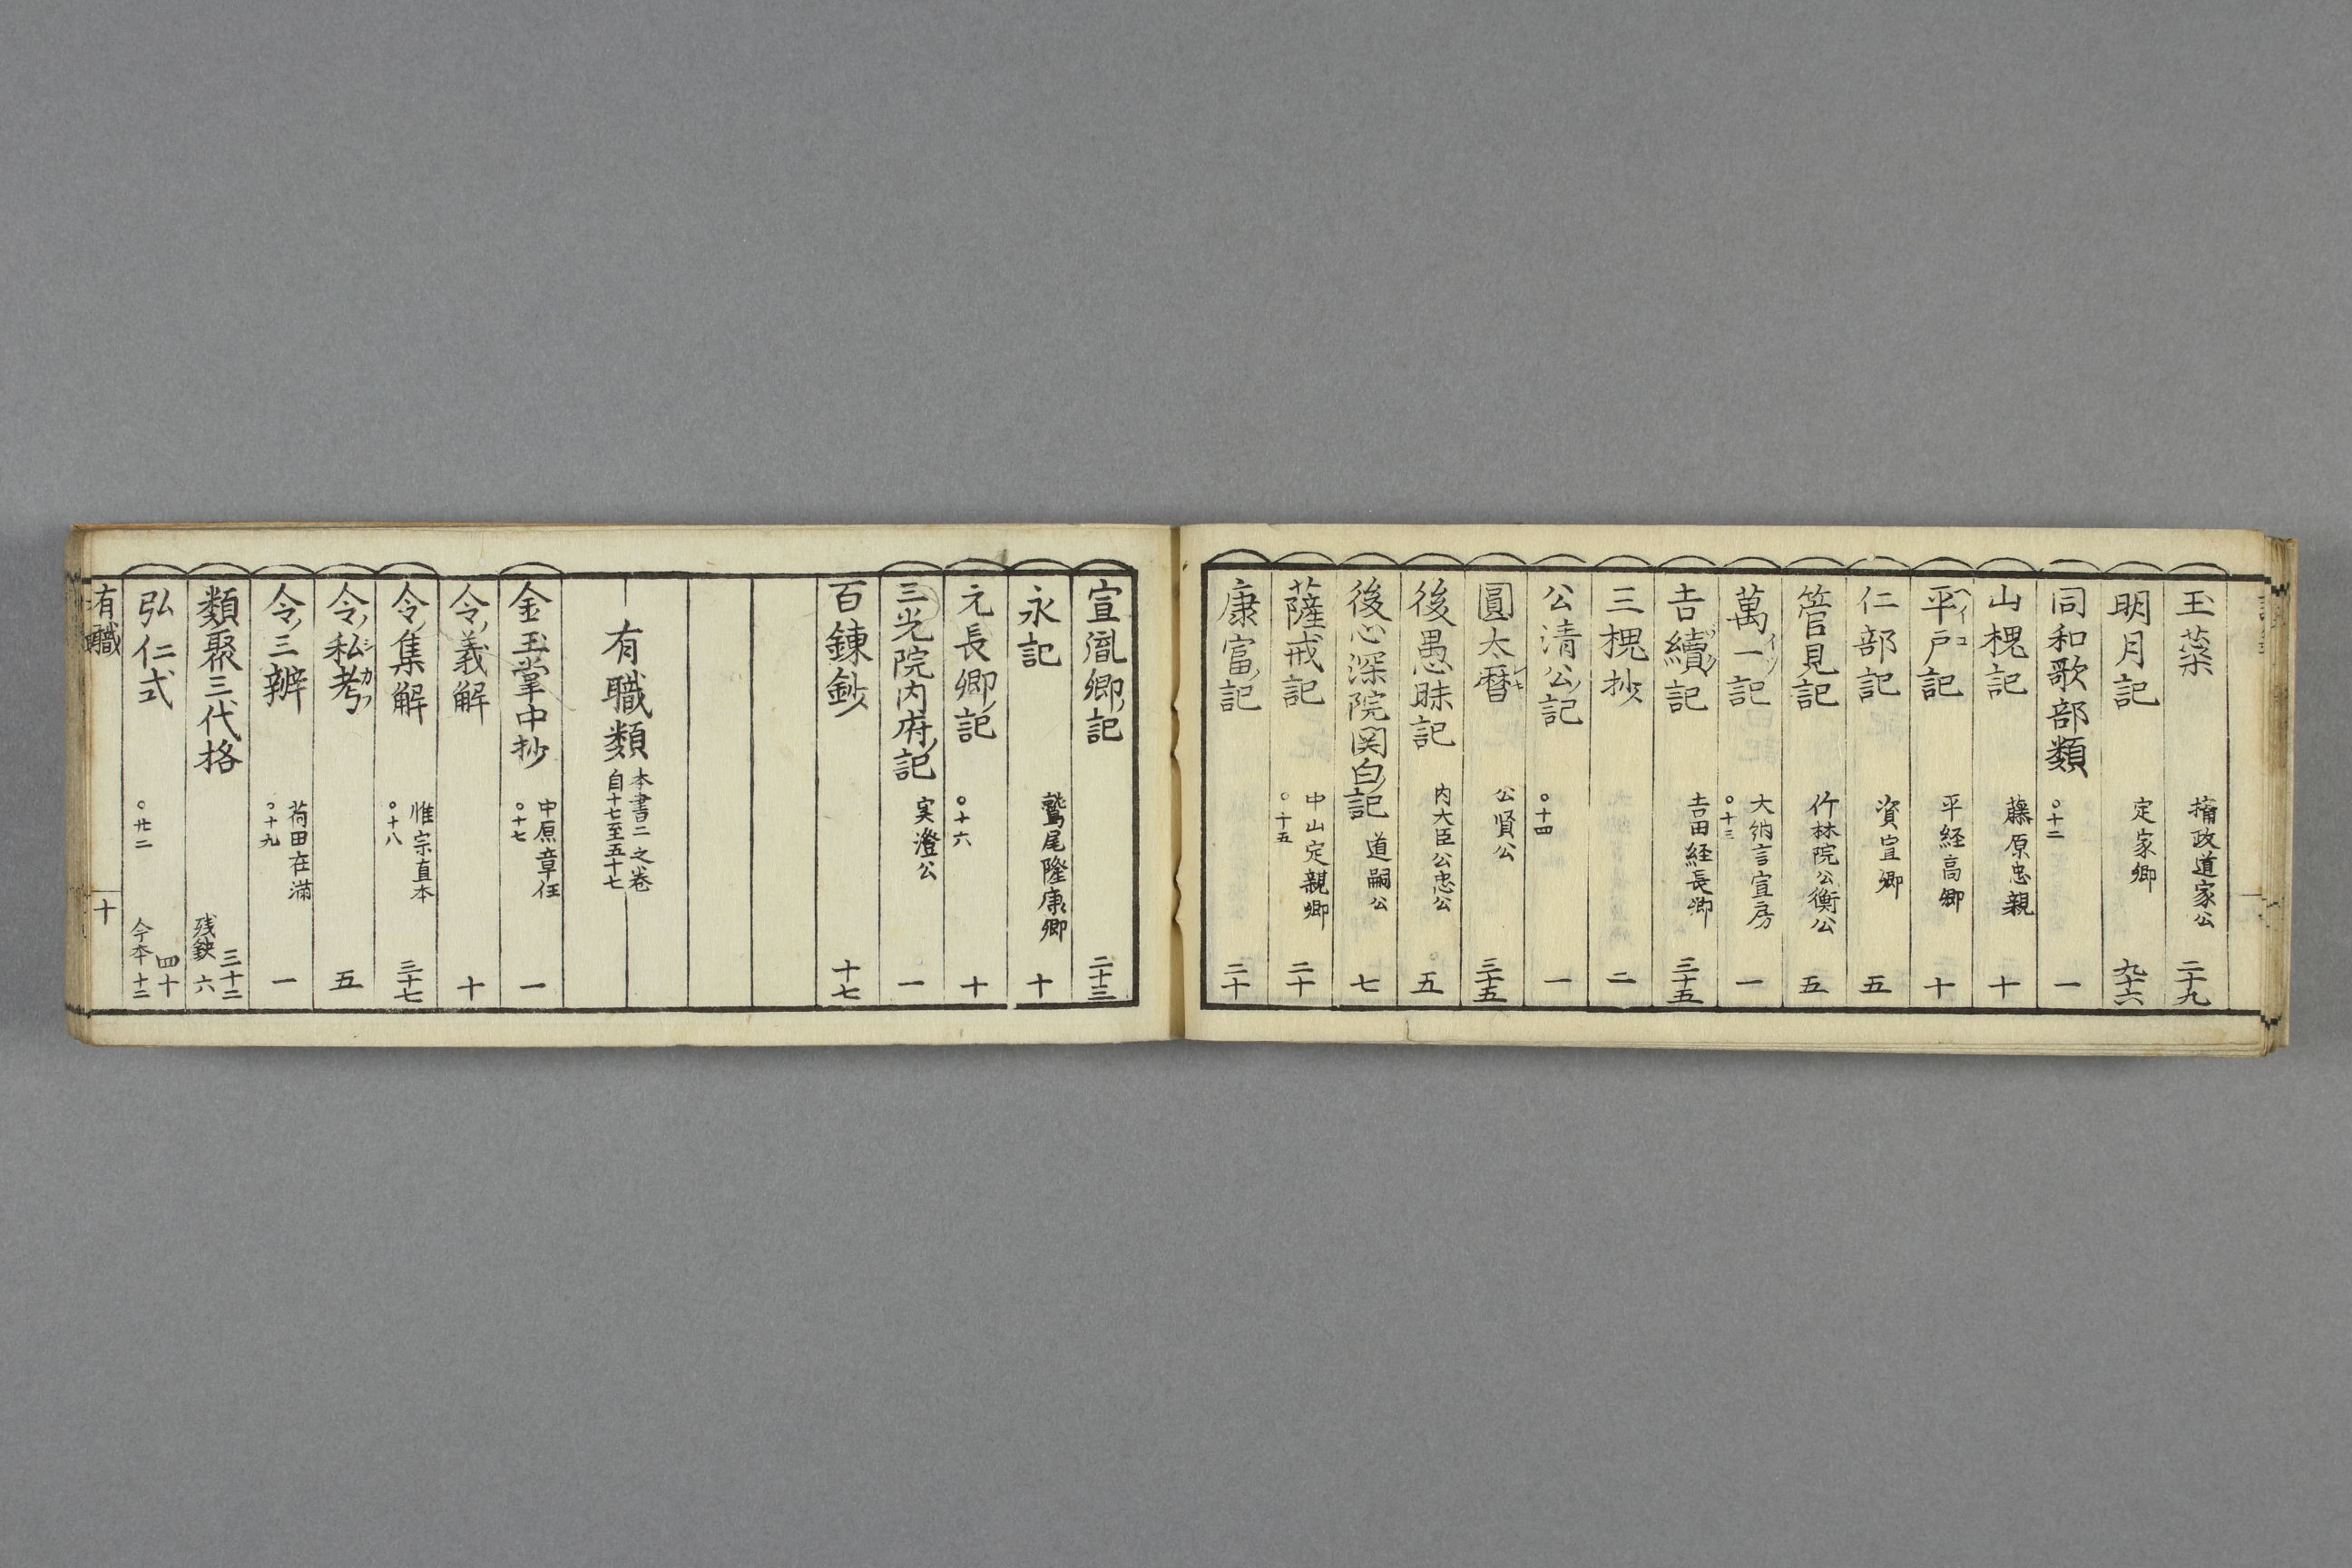 玉蘂 摂政道家公 二十九
明月記 定家卿 九十六
同和歌部類 ○十二 一
山槐記 藤原忠親 十
平戸記 ヘイコ 平経高卿 十
仁部記 資宣卿 五
管見記 竹林院公衡公 五
萬一記 イツ 大納言宣房 ○十三 一
吉續記 ゾク 吉田経長卿 三十五
三槐抄 二
公清公記 ○十四 一
圓太暦 レキ 公賢公 三十五
後愚昧記 内大臣公忠公 五
後心深院関白記 道嗣公 七
薩戒記 中山定親卿 ○十五 二十
康富記 二十
宣胤卿記 二十三
永記 鷲尾隆康卿 十
元長卿記 ○十六 十
三光院内府記 実澄公 一
百錬鈔 十七
有職類 本書二之巻 自十七至五十七
金玉掌中抄 中原章任 ○十七 一
令義解 十
令ノ集解 惟宗直本 ○十八 三十七
令ノ私考 シカフ 五
令ノ三辨 荷田在満 ○十九 一
類聚三代格 三十二 残缺 六
弘仁式 ○廿二 四十 今本十三
有職 十